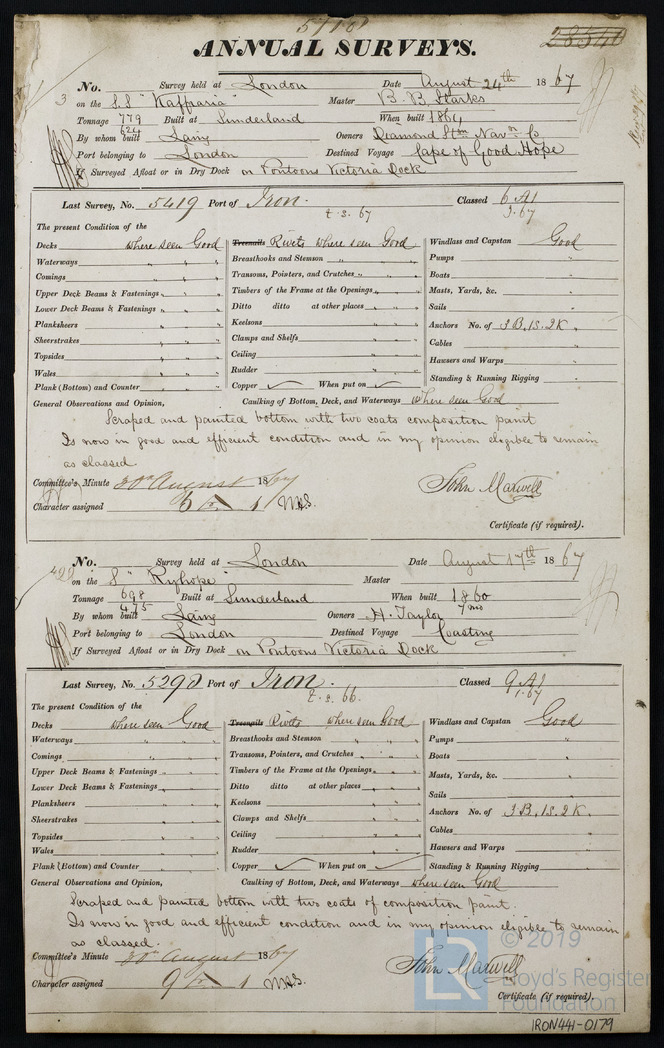 ANNUAL SURVEYS.
28540
No. Survey held at London Date August 24th 1867
on the S.S "Kaffraria" Master B. B. Starks
Tonnage 779 Built at Sunderland When built 1864
624
By whom built Laing Owners Diamond Stm Navn Co
Port belonging to London Destined Voyage Cape of Good Hope
If Surveyed Afloat or in Dry Dock on Pontoons Victoria Dock
Last Survey, No. 5419 Port of Iron. Classed 6 A1
t.s. 67 3.67
The present Condition of the
Decks where seen Good Treenails Rivets where seen Good Windlass and Capstan Good
Waterways " " Breasthooks and Stemson " " Pumps "
Comings " " Transoms, Pointers, and Crutches " " Boats "
Upper Deck Beams & Fastenings " " Timbers of the Frame at the Openings " " Masts, Yards, &c. "
Lower Deck Beams & Fastenings " " Ditto ditto at other places " " Sails "
Planksheers " " Keelsons " " Anchors No. of 3B.1S.2K. "
Sheerstrakes " " Clamps and Shelfs " " Cables "
Topsides " " Ceiling " " Hawsers and Warps "
Wales " " Rudder " " Standing & Running Rigging "
Plank (Bottom) and Counter " " Copper ✓ When put on ✓
General Observations and Opinion, Caulking of Bottom, Deck, and Waterways where seen Good
Scraped and painted bottom with two coats composition paint
Is now in good and efficient condition and in my opinion eligible to remain
as classed
Committee's Minute 30th August 1867 John Maxwell
Character assigned 6 A 1
Certificate (if required).
No. Survey held at London Date August 17th 1867
on the S "Ryhope" Master
Tonnage 698 Built at Sunderland When built 1860
475 7mo
By whom built Laing Owners H. Taylor
Port belonging to London Destined Voyage Coasting
If Surveyed Afloat or in Dry Dock on Pontoons Victoria Dock
Last Survey, No. 5298 Port of Iron. Classed 9 A1
t.s. 66. 1.67
The present Condition of the
Decks where seen Good Treenails Rivets where seen Good Windlass and Capstan Good
Waterways " " Breasthooks and Stemson " " Pumps "
Comings " " Transoms, Pointers, and Crutches " " Boats "
Upper Deck Beams & Fastenings " " Timbers of the Frame at the Openings " " Masts, Yards, &c. "
Lower Deck Beams & Fastenings " " Ditto ditto at other places " " Sails "
Planksheers " " Keelsons " " Anchors No. of 3B.1S.2K. "
Sheerstrakes " " Clamps and Shelfs " " Cables "
Topsides " " Ceiling " " Hawsers and Warps "
Wales " " Rudder " " Standing & Running Rigging "
Plank (Bottom) and Counter " " Copper ✓ When put on ✓
General Observations and Opinion, Caulking of Bottom, Deck, and Waterways where seen Good
Scraped and painted bottom with two coats of composition paint.
Is now in good and efficient condition and in my opinion eligible to remain
as classed.
Committee's Minute 30th August 1867 John Maxwell
Character assigned 9 A 1
Certificate (if required).
LR © 2019
Lloyd's Register
Foundation
IRON441-0179